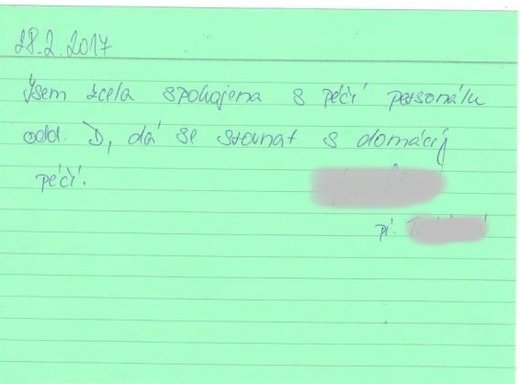 28.2.2017
Jsem zcela spokojena s péčí personálu
odd. D, dá se srovnat s domácí
péčí.
pí.